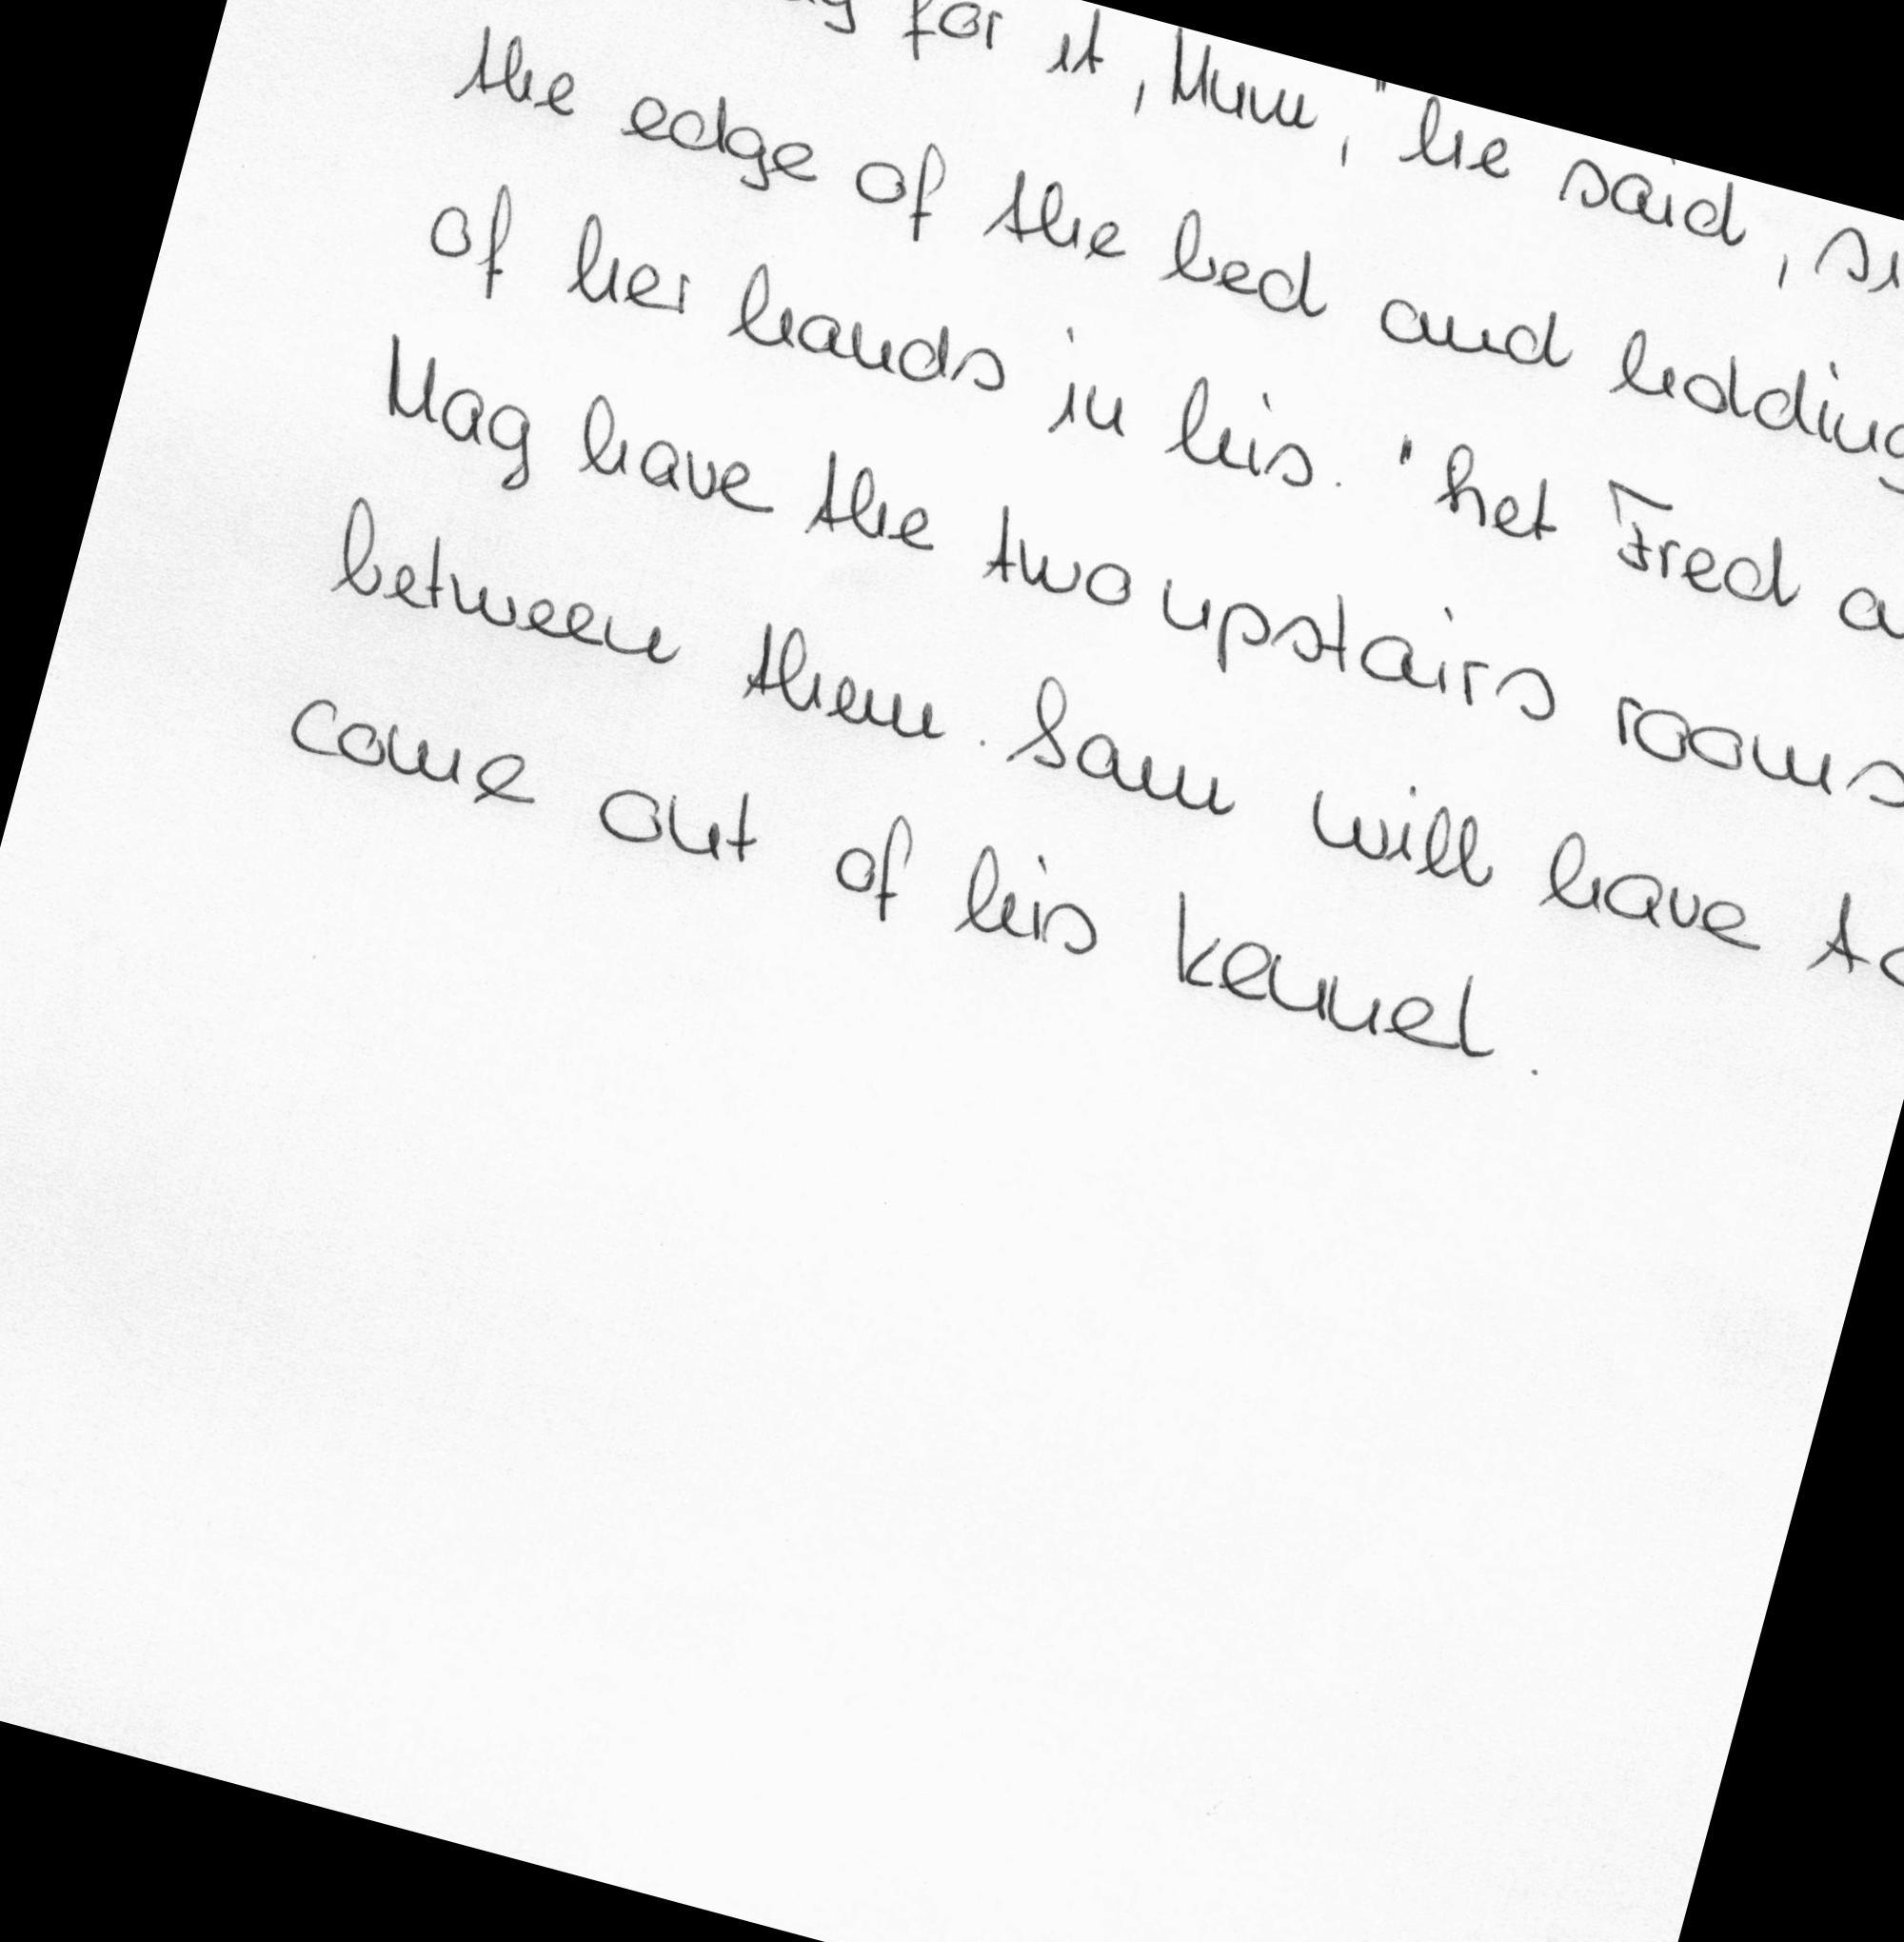 for it, Mum," he said,
the edge of the bed and holding
of her hands in his. "Let Fred
Mag have the two upstairs rooms
between them. Sam will have to
come out of his kennel.